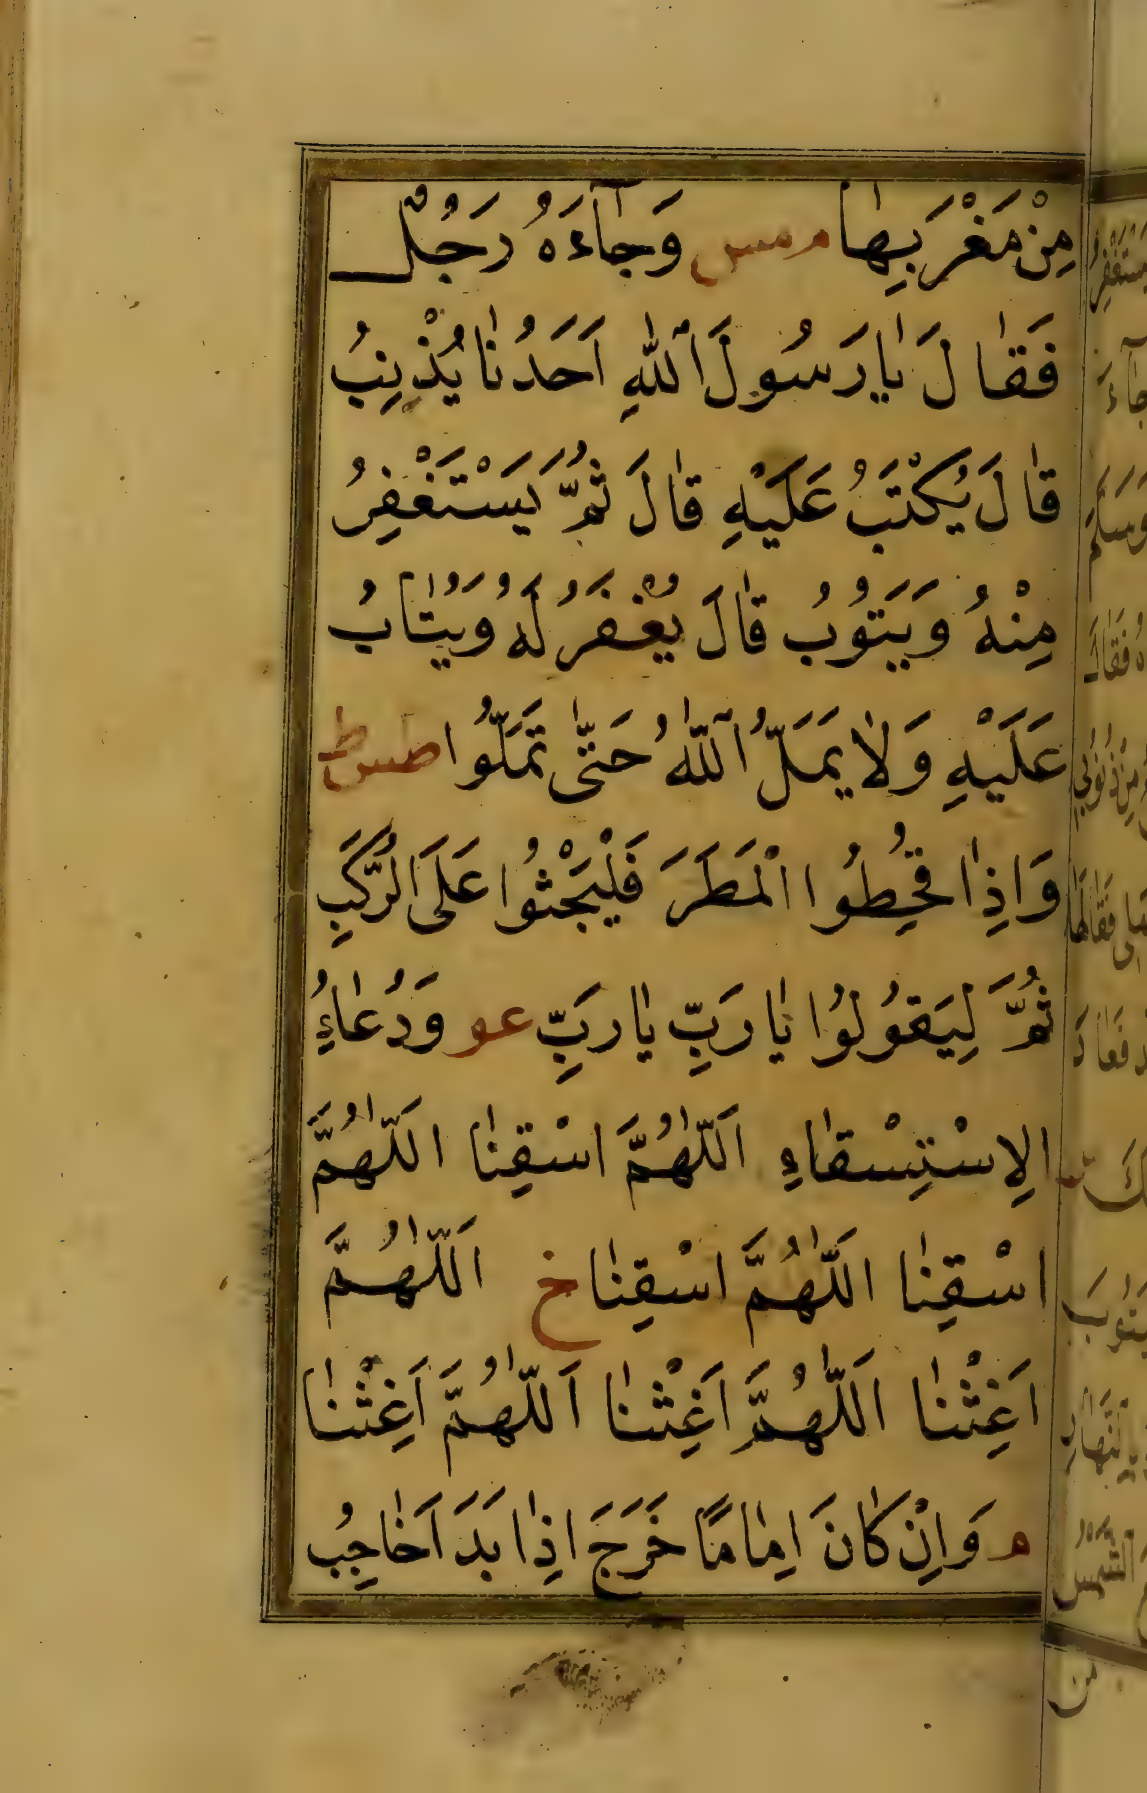 مِنْ مَغْرَبِهٰا م س وَجٰآءَهُ رَجُلٌ
فَقٰالَ يٰارَسُولَ ٱللّٰهِ اَحَدُنٰا يُذْنِبُ
قٰالَ يُكْتَبُ عَلَيْهِ قٰالَ ثُمَّ يَسْتَغْفِرُ
مِنْهُ وَيَتُوبُ قٰالَ يُغْفَرُ لَهُ وَيُتٰابُ
عَلَيْهِ وَلٰا يَمَلُّ ٱللّٰهُ حَتّٰى تَمَلُّوا طس ط
وَاِذٰا قُحِطُوا الْمَطَرَ فَلْيَجْثُوا عَلَى الرُّكَبِ
ثُمَّ لِيَقُولُوا يٰا رَبِّ يٰا رَبِّ عو وَدُعٰاءُ
الِاسْتِسْقٰاءِ اَللّٰهُمَّ اسْقِنٰا اَللّٰهُمَّ
اسْقِنٰا اَللّٰهُمَّ اسْقِنٰا خ اَللّٰهُمَّ
اَغِثْنٰا اَللّٰهُمَّ اَغِثْنٰا اَللّٰهُمَّ اَغِثْنٰا
م وَاِنْ كٰانَ اِمٰامًا خَرَجَ اِذٰا بَدَ اَحٰاجِبُ